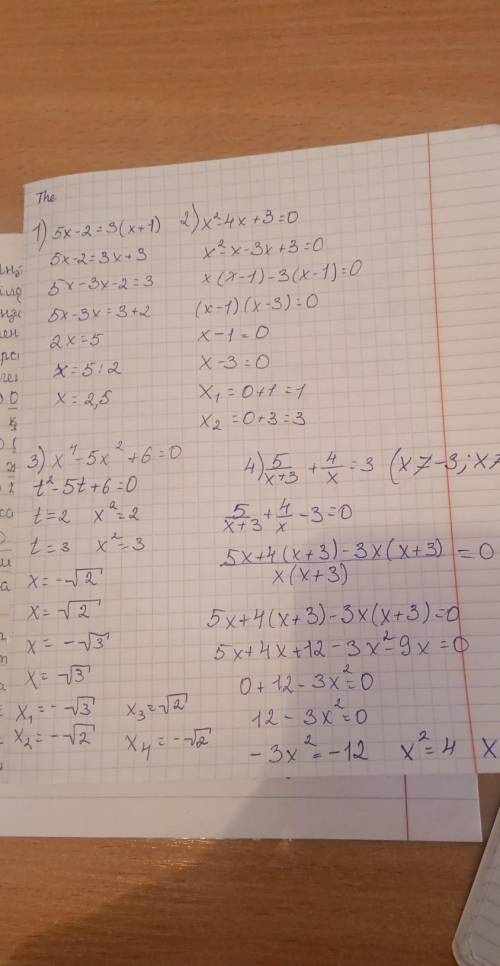 The
1) 5x-2=3(x+1)
5x-2=3x+3
5x-3x-2=3
5x-3x=3+2
2x=5
x=5:2
x=2,5
2) x²-4x+3=0
x²-x-3x+3=0
x(x-1)-3(x-1)=0
(x-1)(x-3)=0
x-1=0
x-3=0
x₁=0+1=1
x₂=0+3=3
3) x⁴-5x²+6=0
t²-5t+6=0
t=2 x²=2
t=3 x²=3
x=-√2
x=√2
x=-√3
x=√3
x₁=-√3 x₃=√2
x₂=-√2 x₄=-√2
4) 5/(x+3) + 4/x = 3 (x≠-3; x≠
5/(x+3) + 4/x - 3 = 0
(5x+4(x+3)-3x(x+3))/(x(x+3)) = 0
5x+4(x+3)-3x(x+3)=0
5x+4x+12-3x²-9x=0
0+12-3x²=0
12-3x²=0
-3x²=-12 x²=4 x